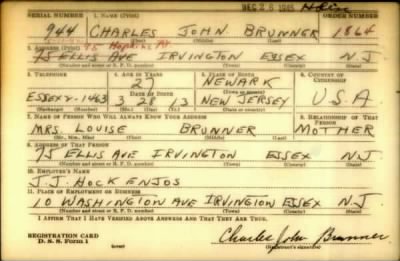 DEC 26 1945
SERIAL NUMBER 1. NAME (Print) ORDER NUMBER
944 CHARLES JOHN BRUNNER 1864
(First) (Middle) (Last)
2. ADDRESS (Print) 95 Hopkins Pl
75 ELLIS AVE IRVINGTON ESSEX N J
(Number and street or R. F. D. number) (Town) (County) (State)
3. TELEPHONE 4. AGE IN YEARS 5. PLACE OF BIRTH 6. COUNTRY OF CITIZENSHIP
27 NEWARK
DATE OF BIRTH (Town or county)
ESSEX 1463 3 28 13 NEW JERSEY U.S.A
(Exchange) (Number) (Mo.) (Day) (Yr.) (State or country)
7. NAME OF PERSON WHO WILL ALWAYS KNOW YOUR ADDRESS 8. RELATIONSHIP OF THAT PERSON
MRS. LOUISE BRUNNER MOTHER
(Mr., Mrs., Miss) (First) (Middle) (Last)
9. ADDRESS OF THAT PERSON
75 ELLIS AVE IRVINGTON ESSEX N.J.
(Number and street or R. F. D. number) (Town) (County) (State)
10. EMPLOYER'S NAME
J.J. HOCKENJOS
11. PLACE OF EMPLOYMENT OR BUSINESS
10 WASHINGTON AVE IRVINGTON ESSEX N.J
(Number and street or R. F. D. number) (Town) (County) (State)
I AFFIRM THAT I HAVE VERIFIED ABOVE ANSWERS AND THAT THEY ARE TRUE.
REGISTRATION CARD
D. S. S. Form 1 (over) Charles John Brunner
(Registrant's signature)